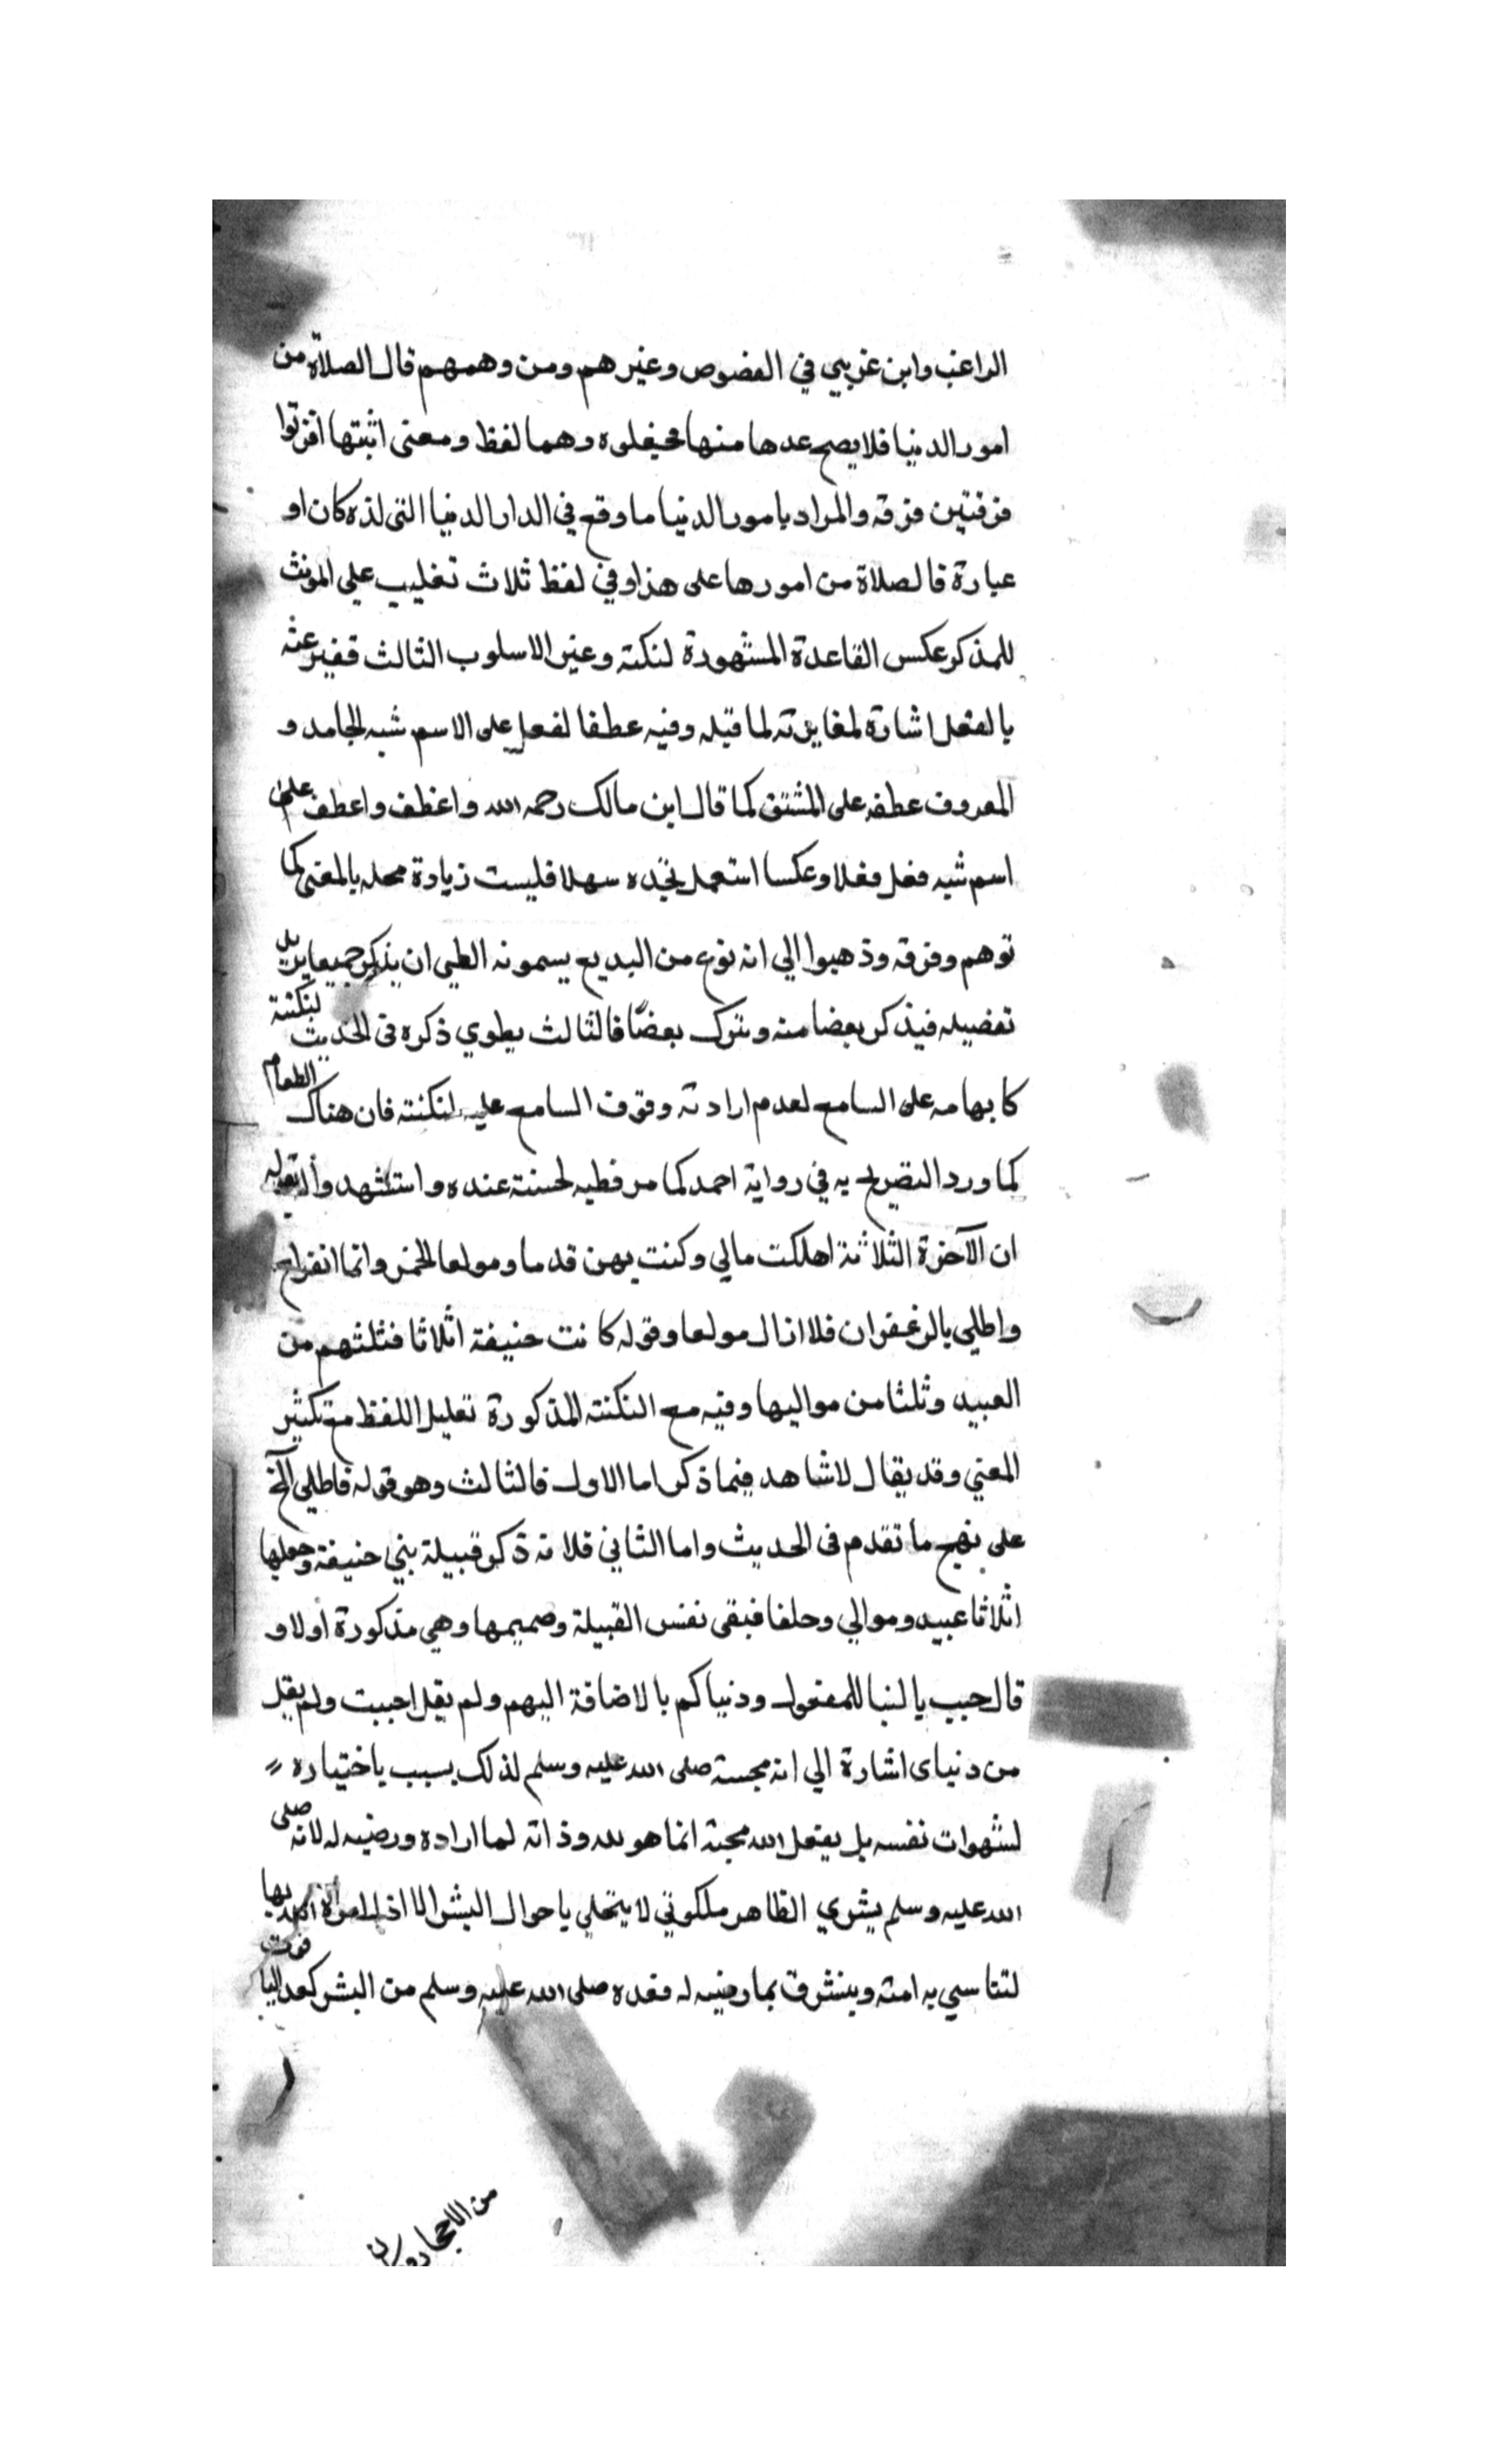 الراغب وابن عربي في الفصوص وغيرهم ومن وهمهم قال الصلاة من
امور الدنيا فلا يصح عدها منها وهما لفظ ومعنى اثبتها افترتوا
فرقتين فرقه والمراد بامور الدنيا ما وقع في الدار الدنيا التى لذه كان او
عبارة فالصلاة من امورها على هذا وفي لفظ ثلاث تغليب علي المونث
للمذكر عكس القاعدة المشهورة لنكتة وغير الاسلوب الثالث فغير عنه
بالفعل اشارة لمغايرته لما قبله وفيه عطفا لفعل على الاسم شبه الجامد و
المعروف عطفه على المشتق كما قال ابن مالك رحمه الله واعطف واعطف على
اسم شبه فعل فعلا وعكسا استعمل تجده سهلا فليست زيادة محله بالمعنى كما
توهم وفرقه وذهبوا الي انه نوع من البديع يسمونه الطي ان يذكر جميعا يريد
تفصيله فيذكر بعضا منه ويترك بعضًا فالثالث يطوي ذكره فى الحديث لنكتة
كابهامه على السامع لعدم ارادته وقوف السامع عليه لنكتته فان هناك الطعام
كما ورد التصريح به في رواية احمد كما مر فطيه لحسنة عنده واستشهدوا بقوله
ان الآخرة الثلاثة اهلكت مالي وكنت بهن قدما ومولعا الخمر وانما انقراح
واطلي بالزعفران فلا ازال مولعا وقوله كانت حنيفة اثلاثا فثلثهم من
العبيد وثلثا من مواليها وفيه مع النكتة المذكورة تعليل اللفظ مع تكثير
المعني وقد يقال لا شاهد فيما ذكر اما الاول فالثالث وهو قوله فاطلي الخ
على نهج ما تقدم فى الحديث واما الثاني فلانه ذكر قبيلة بني حنيفة وجعلها
اثلاثا عبيد وموالي وحلفا فبقى نفس القبيلة وصميمها وهي مذكورة اولا و
قال حبب بالبنا للمفعول ودنياكم بالاضافة اليهم ولم يقل احببت ولم يقل
من دنياى اشارة الي انه محبته صلى الله عليه وسلم لذلك بسبب باختياره
لشهوات نفسه بل بفعل الله محبته انما هو لله وذاته لما اراده ورضيه له لانه صلى
الله عليه وسلم بشري الظاهر ملكوتي لا يتحلي باحوال البشر الا اذا امره الله بها
لتتاسي به امته ويتشرف بما رضيه له فعده صلى الله عليه وسلم من البشر كعد اليا قوت
من الاحجار